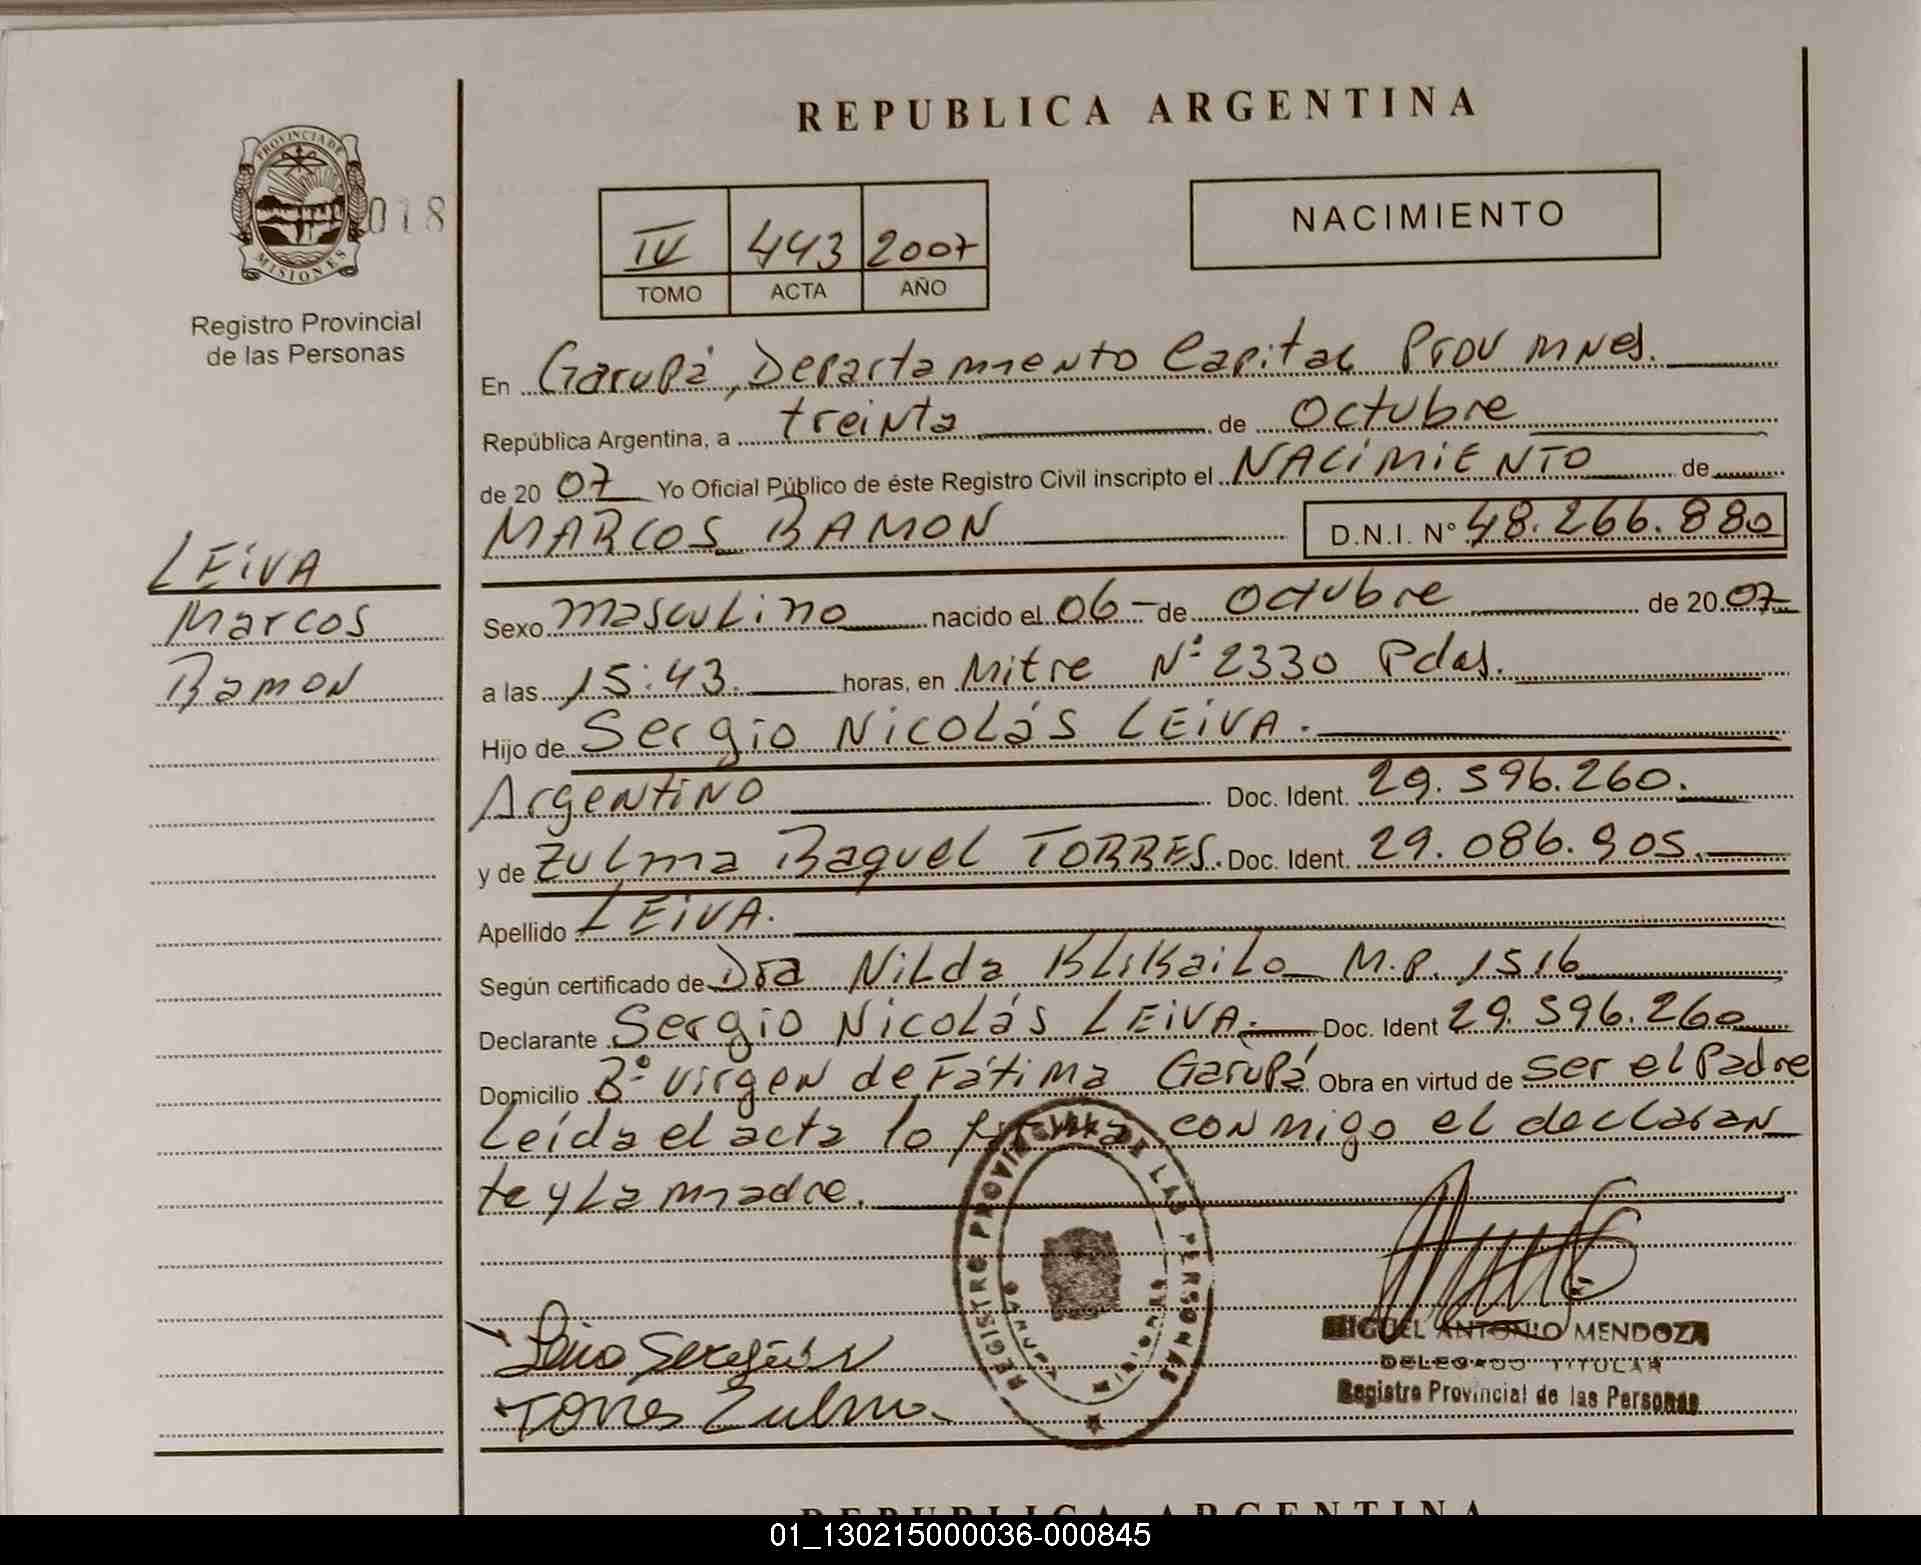 REPUBLICA ARGENTINA
PROVINCIA DE
MISIONES
018
Registro Provincial
de las Personas
LEIVA
Marcos
Ramon
IV 443 2007
TOMO ACTA AÑO
NACIMIENTO
En Garupá, Departamiento Capital Prov Mnes.
República Argentina, a treinta de Octubre
de 20 07 Yo Oficial Público de éste Registro Civil inscripto el NACIMIENTO de
MARCOS RAMON D.N.I. N° 48.266.880
Sexo masculino nacido el 06 - de Octubre de 20 07
a las 15:43. horas, en Mitre N° 2330 Pdas.
Hijo de Sergio Nicolás LEIVA.
Argentino Doc. Ident. 29.596.260.
y de Zulma Raquel TORRES. Doc. Ident. 29.086.905.
Apellido LEIVA.
Según certificado de Dra Nilda Klikailo M.P. 1516
Declarante Sergio Nicolás LEIVA. Doc. Ident 29.596.260
Domicilio B° Virgen de Fátima Garupá Obra en virtud de ser el Padre
Leída el acta lo firma conmigo el declaran
te y La madre.
REGISTRO PROVINCIAL DE LAS PERSONAS
MISIONES
MIGUEL ANTONIO MENDOZA
DELEGADO TITULAR
Registro Provincial de las Personas
Torres Zulma
REPUBLICA ARGENTINA
01_130215000036-000845